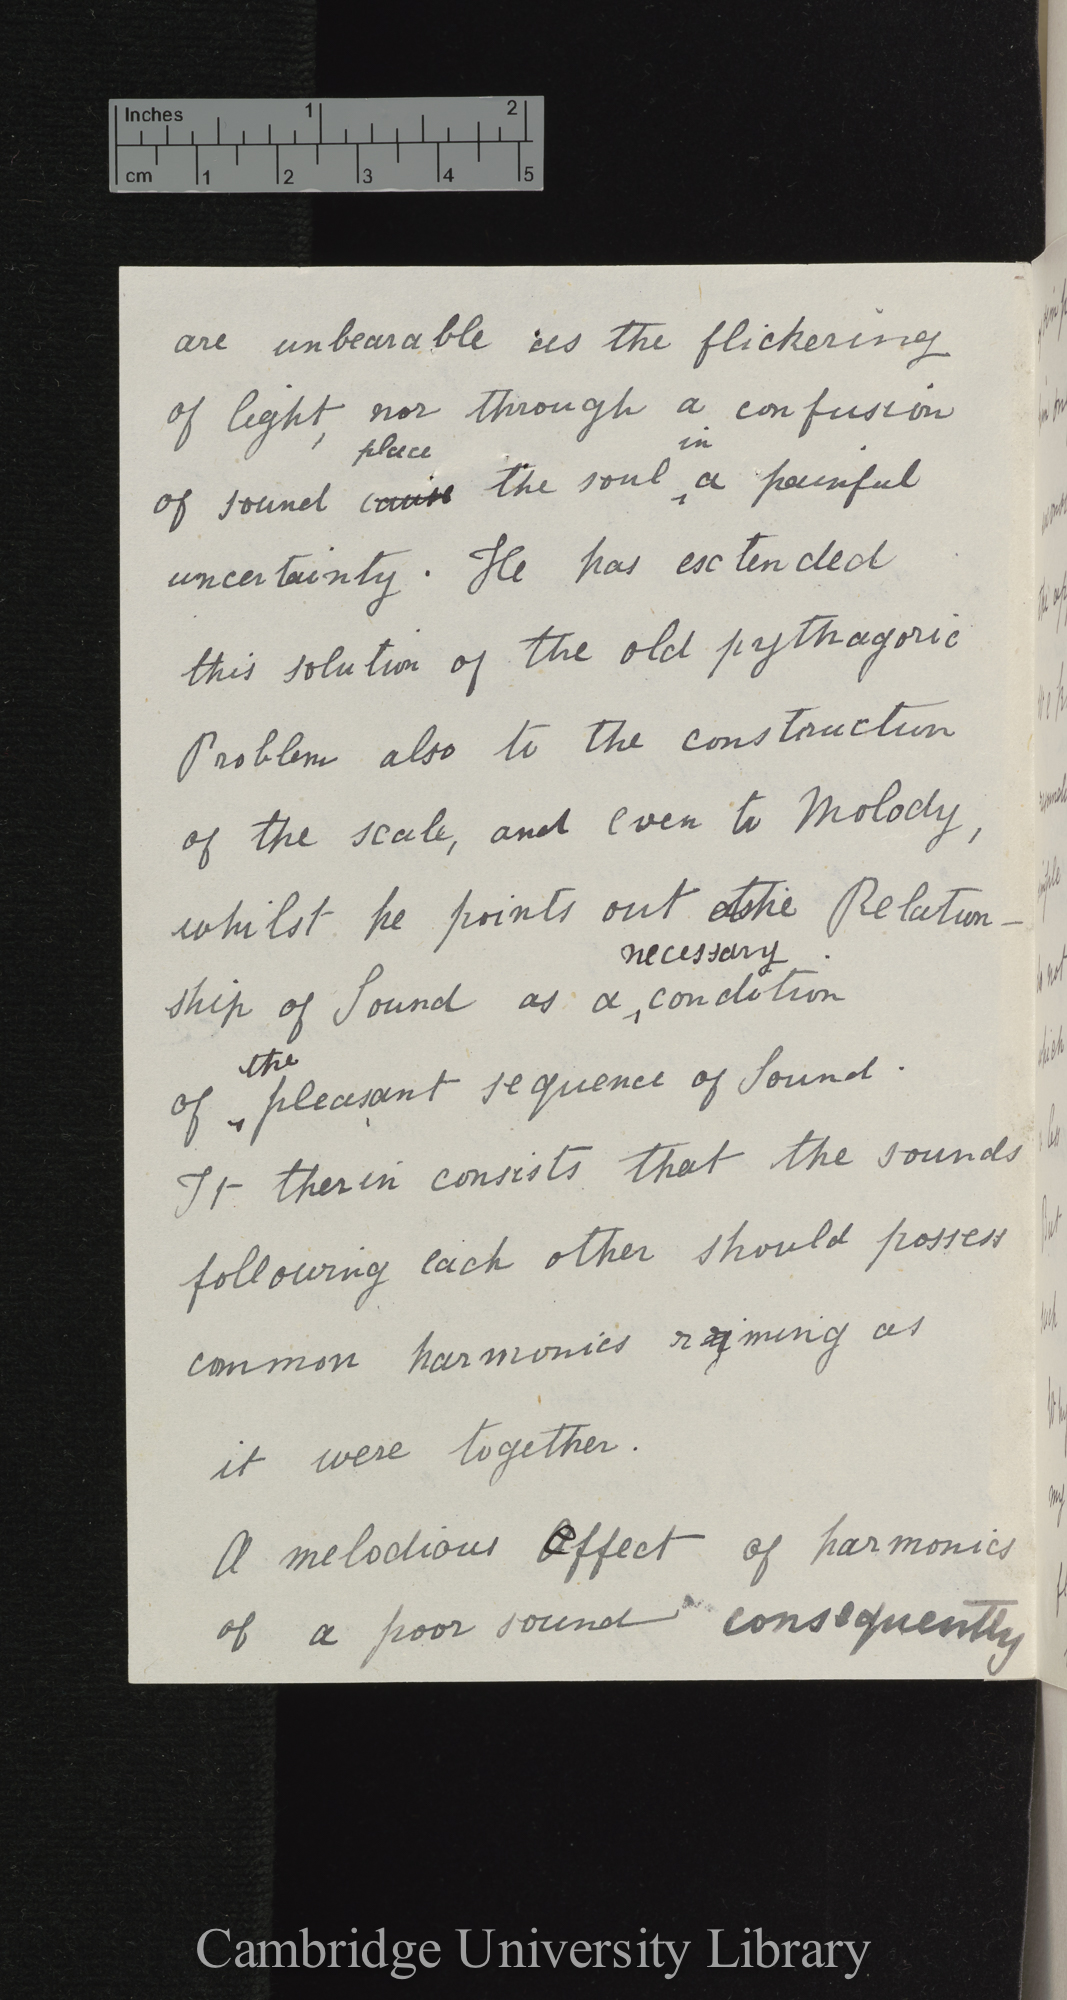 Inches 1 2
cm 1 2 3 4 5
are unbearable as the flickering
of light, nor through a confusion
place in
of sound cause the soul a painful
uncertainty. He has extended
this solution of the old pythagoric
Problem also to the construction
of the scale, and even to Molody,
whilst he points out the Relation-
necessary
ship of Sound as a condition
the
of pleasant sequence of Sound.
It therin consists that the sounds
following each other should possess
common harmonics riming as
it were together.
A melodious effect of harmonics
of a poor sound consequently
Cambridge University Library